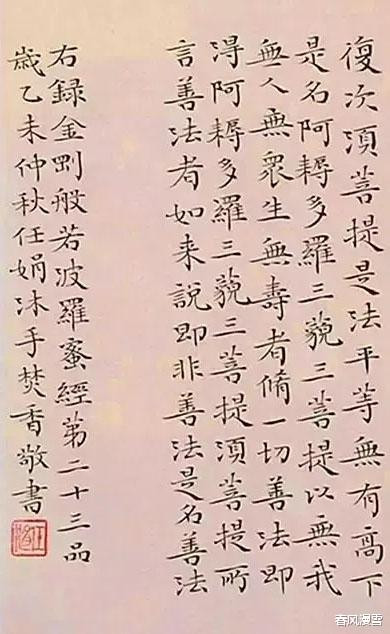 復次須菩提是法平等無有高下
是名阿耨多羅三藐三菩提以無我
無人無衆生無壽者脩一切善法即
得阿耨多羅三藐三菩提須菩提所
言善法者如来說即非善法是名善法
右録金剛般若波羅蜜經第二十三品
歲乙未仲秋任娟沐手焚香敬書
春风漫雪